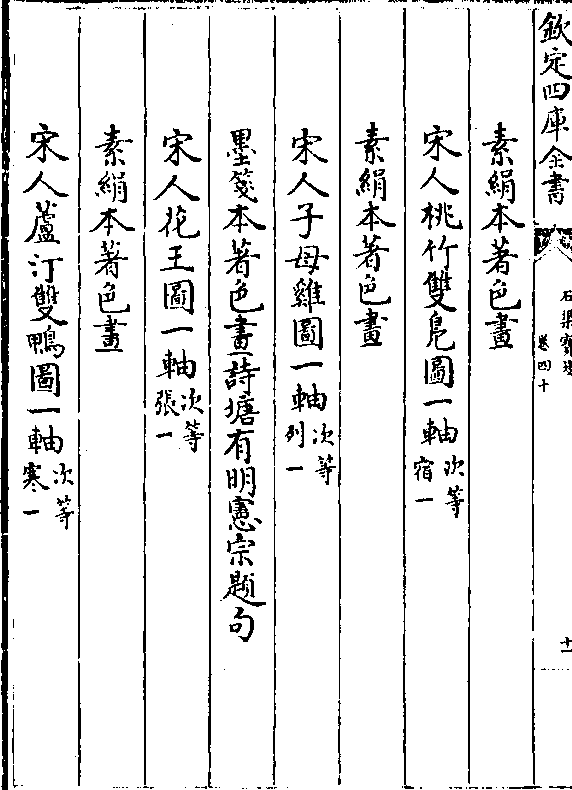 欽定四庫全書
石渠寶笈
卷四十
十一
素絹本著色畫
宋人桃竹雙鳬圖一軸次等宿一
素絹本著色畫
宋人子母雞圖一軸次等列一
墨箋本著色畫詩塘有明憲宗題句
宋人花王圖一軸次等張一
素絹本著色畫
宋人蘆汀雙鴨圖一軸次等寒一